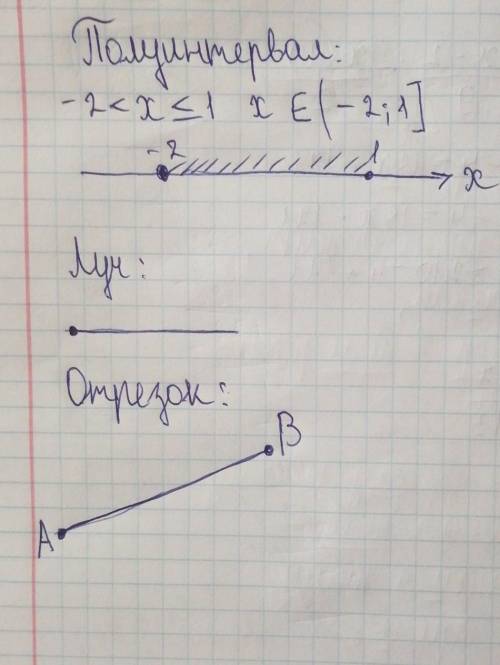 Полуинтервал:
-2 < x ≤ 1 x ∈ (-2; 1]
-2 1
x
Луч:
Отрезок:
B
A